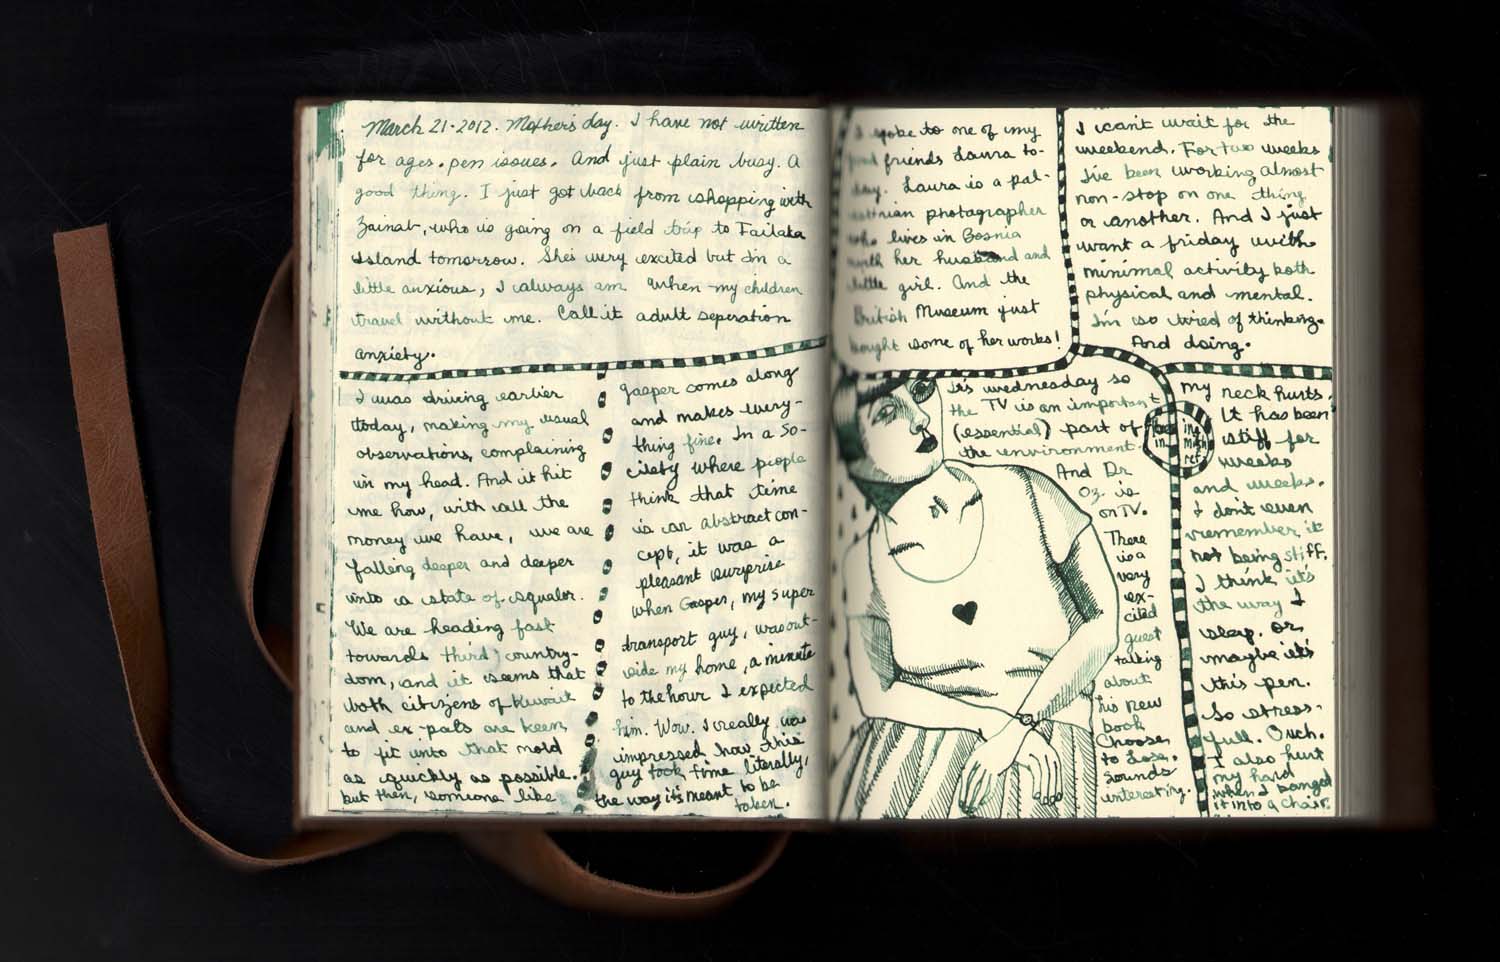 March 21·2012. Mother's day. I have not written
for ages. pen issues. And just plain busy. A
good thing. I just got back from shopping with
Zainab, who is going on a field trip to Failaka
Island tomorrow. She's very excited but I'm a
little anxious, I always am when my children
travel without me. Call it adult seperation
anxiety.
I was driving earlier
today, making my usual
observations, complaining
in my head. And it hit
me how, with all the
money we have, we are
falling deeper and deeper
into a state of squalor.
We are heading fast
towards third country-
dom, and it seems that
both citizens of Kuwait
and ex-pats are keen
to fit into that mold
as quickly as possible.
but then, someone like
Gasper comes along
and makes every-
thing fine. In a so-
ciety where people
think that time
is an abstract con-
cept, it was a
pleasant surprise
when Gasper, my super
transport guy, was out-
side my home, a minute
to the hour I expected
him. Wow. I really was
impressed how this
guy took time literally,
the way it's meant to be
taken.
I spoke to one of my
good friends Laura to-
day. Laura is a pal-
estinian photographer
who lives in Bosnia
with her husband and
little girl. And the
British Museum just
bought some of her works!
I can't wait for the
weekend. For two weeks
I've been working almost
non-stop on one thing
or another. And I just
want a friday with
minimal activity both
physical and mental.
I'm so tired of thinking.
And doing.
it's wednesday so
the TV is an important
(essential) part of
the environment.
And Dr
Oz. is
on TV.
There
is a
very
ex-
cited
guest
talking
about
his new
book
Choose
to Lose.
Sounds
interesting.
my neck hurts.
It has been
stiff for
weeks
and weeks.
I don't even
remember it
not being stiff.
I think it's
the way I
sleep. or
maybe it's
this pen.
So stress-
full. Ouch.
I also hurt
my hand
when I banged
it into a chair.